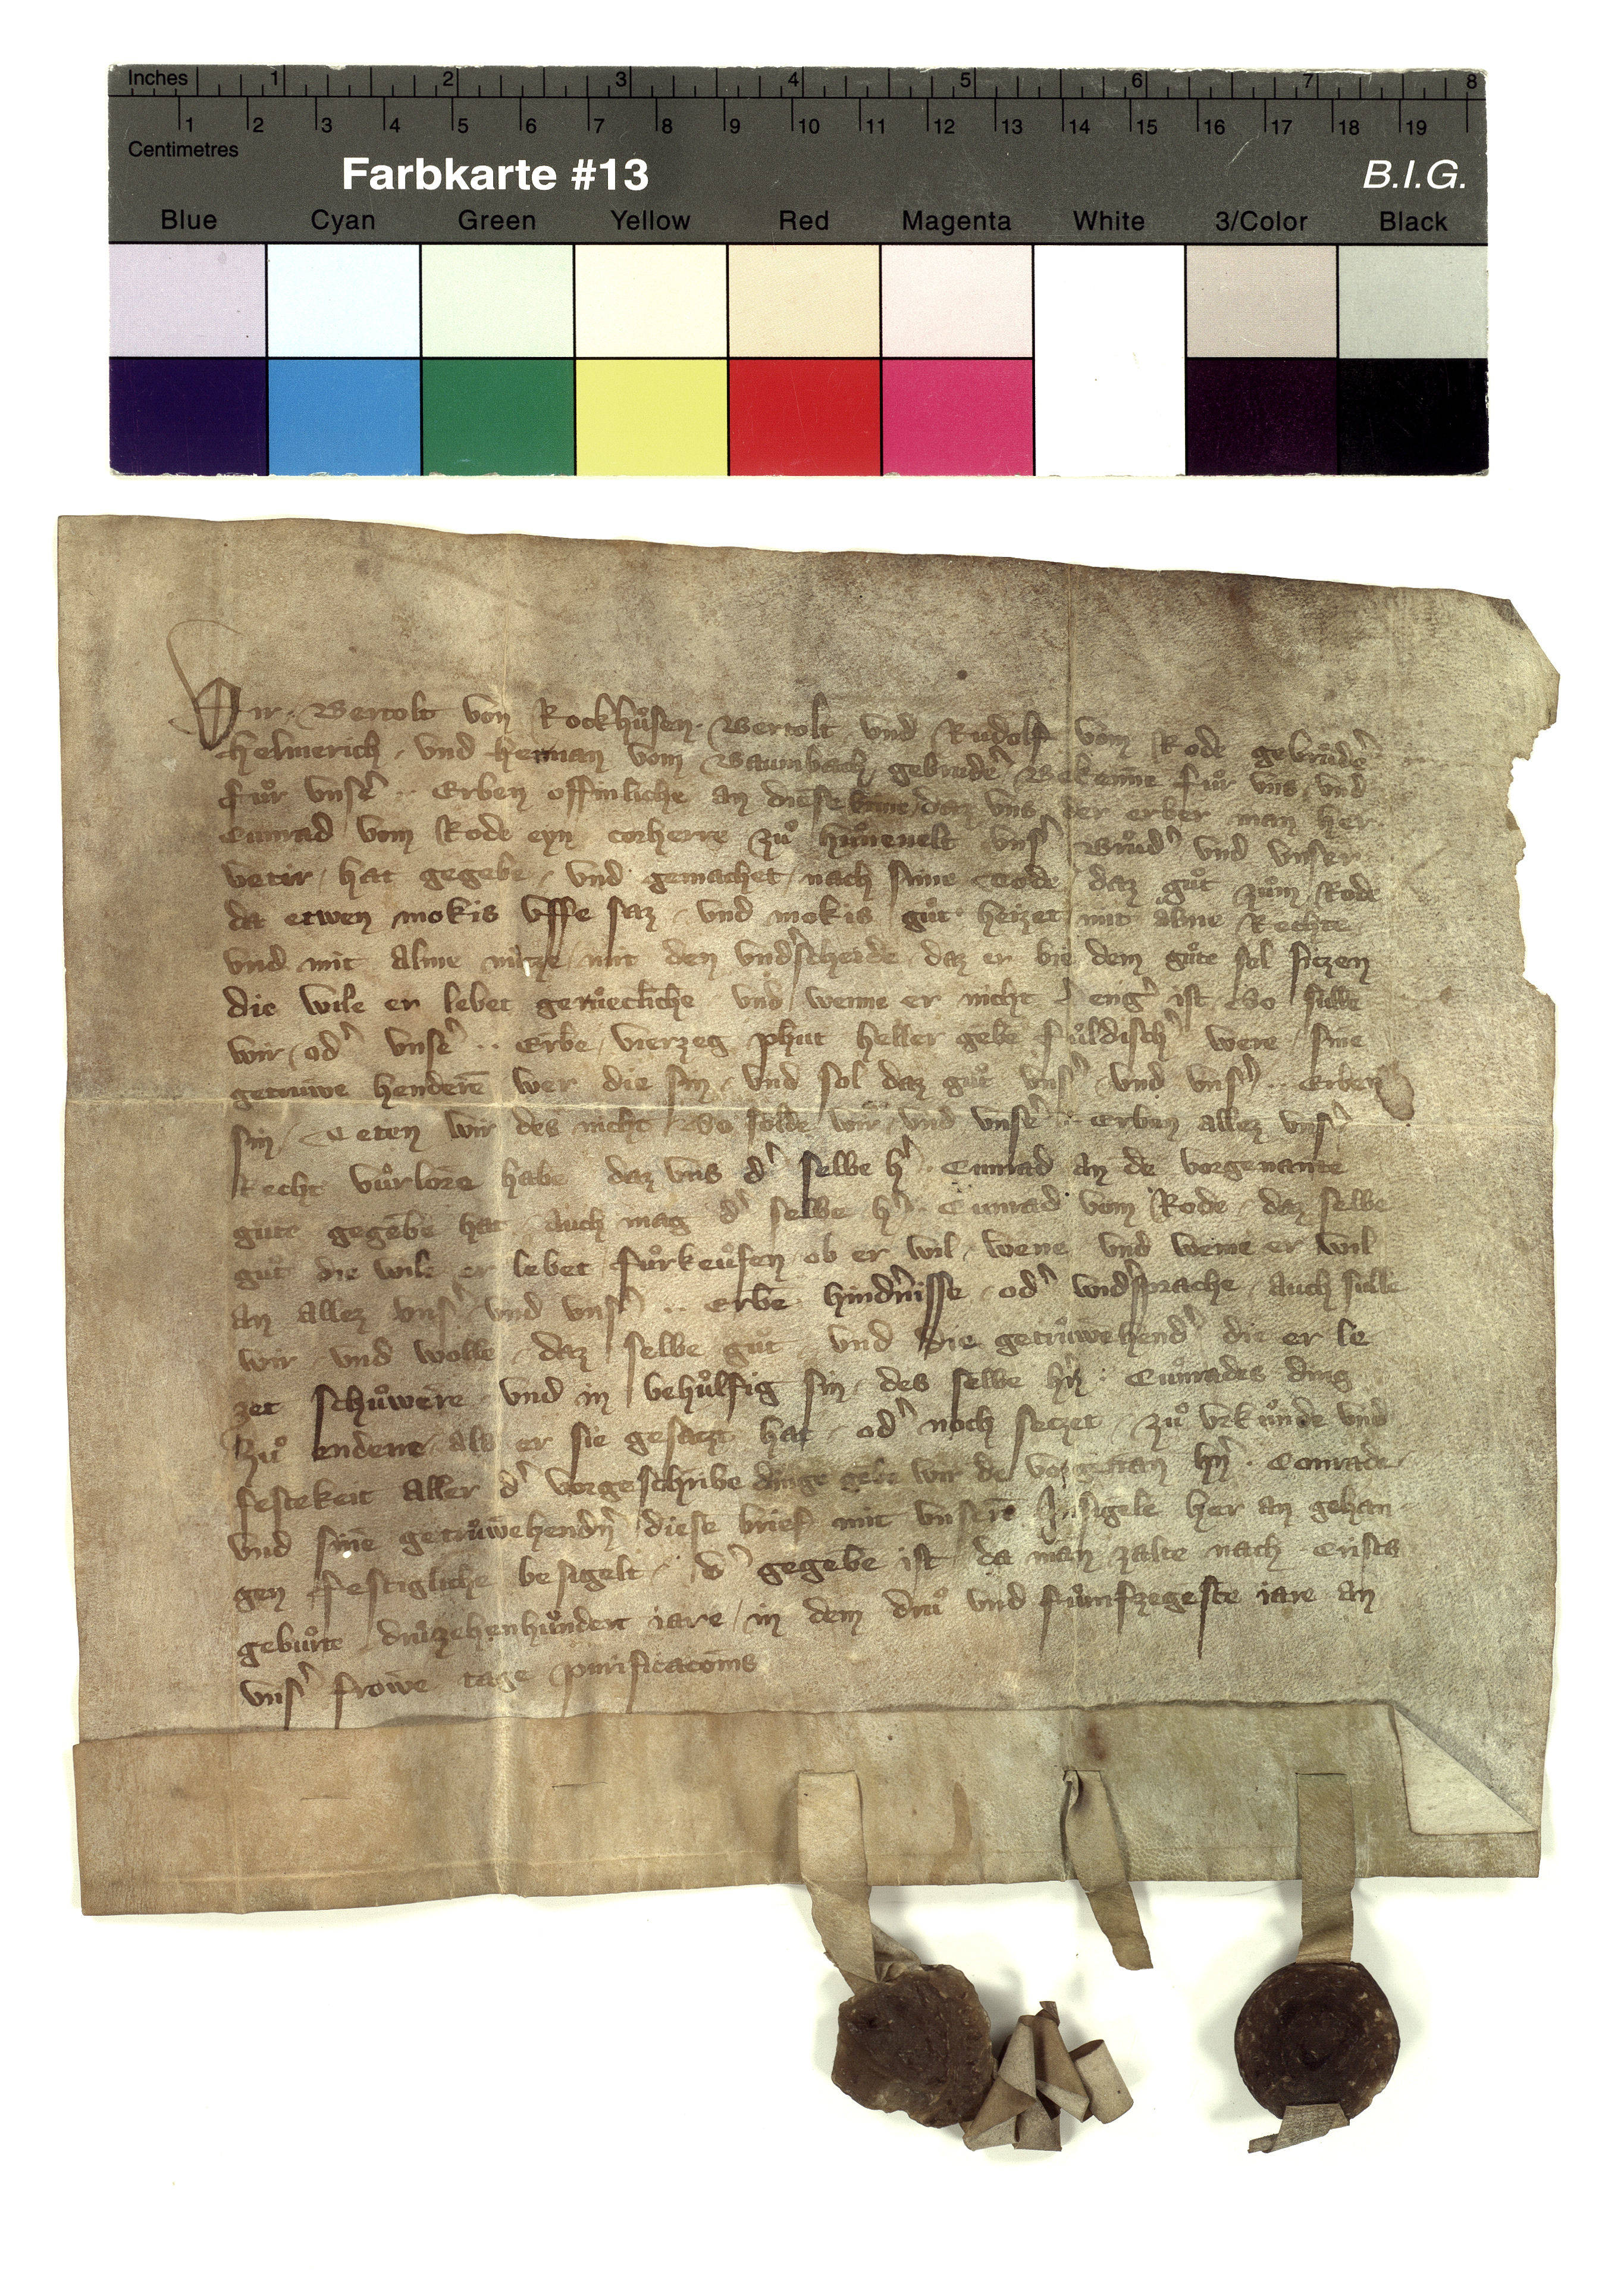 Inches 1 2 3 4 5 6 7 8
1 2 3 4 5 6 7 8 9 10 11 12 13 14 15 16 17 18 19
Centimetres
Farbkarte #13 B.I.G.
Blue Cyan Green Yellow Red Magenta White 3/Color Black
Wir · Bertolt von Rockhuͦsen · Bertolt und Rudolf vom Rode gebruͦder
helmerich · und herman vom Baumbach gebruder Bekenne fuͦr uns und
fuͦr unser ·· Erben offinliche an diesse brive daz uns der erber man her
Cunrad vom Rode eyn corherre zuͦ huͦnevelt uns' Bruͦd' und unser
vetir hat gegebē und gemachet nach sime Tode daz guͦt zuͦm Rode
da etwen mokis uffe saz und mokis guͦt heizet mit alme Rechte
und mit alme nutze mit den und'scheide daz er bie dem guͦte sol sitzen
die wile er lebet geruͦecliche und wenne er nicht eng' ist So sulle
wir od' unse' ·· Erbē vierzeg phut heller gebē fuͦldisch' were sine
getruwe henderē wer die sin und sol daz guͦt uns' und uns' ·· Erben
sin Teten wir des nicht So solde wir und unse' ·· Erben allez uns'
Recht vuͦrlorē habē daz uns d' selbe h' ·· Cunrad an dē vorgenante
gute gegebē hat Auch mag d' selbe h' ·· Cunrad vom Rode daz selbe
guͦt die wile er lebet fuͦrkeuͦfen ob er wil weme und wenne er wil
an allez uns' und uns' ·· Erbē hind'nisse od' wid'sprache auch sulle
wir und wolle daz selbe guͦt und die getruͦwēhend' die er le
zet schuͦwerē und in behuͦlfig sin des selbē h'n · Cuͦnrades ding
Zuͦ endene als er sie gesatzt hat od' noch setzet Zuͦ urkuͦnde und
festekeit aller d' vorgeschribē dinge gebē wir dē vorgenan h'n · Conrade
und sinē getruͦwēhend'n diese brief mit unserē Insigele her an gehan
gen festigliche besigelt d' gegebē ist da man zalte nach Crists
geburte druͦzehenhuͦndert iare in dem druͦ und fuͦmfzegestē iare an
uns' frowē tage purificacionis